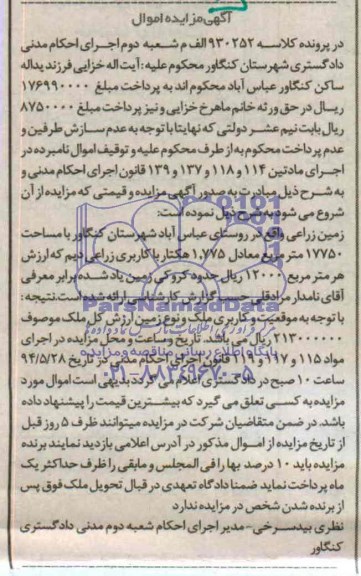 آگهی مزایده اموال
در پرونده کلاسه ۹۳۰۲۵۲ الف م شعبه دوم اجرای احکام مدنی
دادگستری شهرستان کنگاور محکوم علیه: آیت اله خزایی فرزند یداله
ساکن کنگاور عباس آباد محکوم اند به پرداخت مبلغ ۱۷۶۹۹۰۰۰۰
ریال در حق ورثه خانم ماهرخ خزایی و نیز پرداخت مبلغ ۸۷۵۰۰۰۰
ریال بابت نیم عشر دولتی که نهایتا با توجه به عدم سازش طرفین و
عدم پرداخت محکوم به از طرف محکوم علیه و توقیف اموال نامبرده در
اجرای مادتین ۱۱۴ و ۱۱۸ و ۱۳۷ و ۱۳۹ قانون اجرای احکام مدنی و
به شرح ذیل مبادرت به صدور آگهی مزایده و قیمتی که مزایده از آن
شروع می شود به شرح ذیل نموده است:
زمین زراعی واقع در روستای عباس آباد شهرستان کنگاور با مساحت
۱۷۷۵۰ متر مربع معادل ۱.۷۷۵ هکتار با کاربری زراعی دیم که ارزش
هر متر مربع ۱۲۰۰۰ ریال حدود کروکی زمین یاد شده برابر معرفی
آقای نامدار مرادقلی حسب گزارش کارشناسی ارائه شده است. نتیجه:
با توجه به موقعیت و کاربری ملک و نوع زمین ارزش کل ملک موصوف
۲۱۳۰۰۰۰۰۰ ریال می باشد. تاریخ و ساعت و محل مزایده در اجرای
مواد ۱۱۵ و ۱۱۷ و ۱۱۹ قانون اجرای احکام مدنی در تاریخ ۹۴/۵/۲۸
ساعت ۱۰ صبح در دادگستری اعلام می گردد بدیهی است اموال مورد
مزایده به کسی تعلق می گیرد که بیشترین قیمت را پیشنهاد داده
باشد. در ضمن متقاضیان شرکت در مزایده میتوانند ظرف ۵ روز قبل
از تاریخ مزایده از اموال مذکور در آدرس اعلامی بازدید نمایند برنده
مزایده باید ۱۰ درصد بها را فی المجلس و مابقی را ظرف حداکثر یک
ماه پرداخت نماید ضمنا دادگاه تعهدی در قبال تحویل ملک فوق پس
از برنده شدن شخص در مزایده ندارد
نظری بیدسرخی- مدیر اجرای احکام شعبه دوم مدنی دادگستری
کنگاور
ParsNamadData
پایگاه اطلاع رسانی مناقصه و مزایده
۰۲۱-۸۸۳۴۹۶۷۰-۵